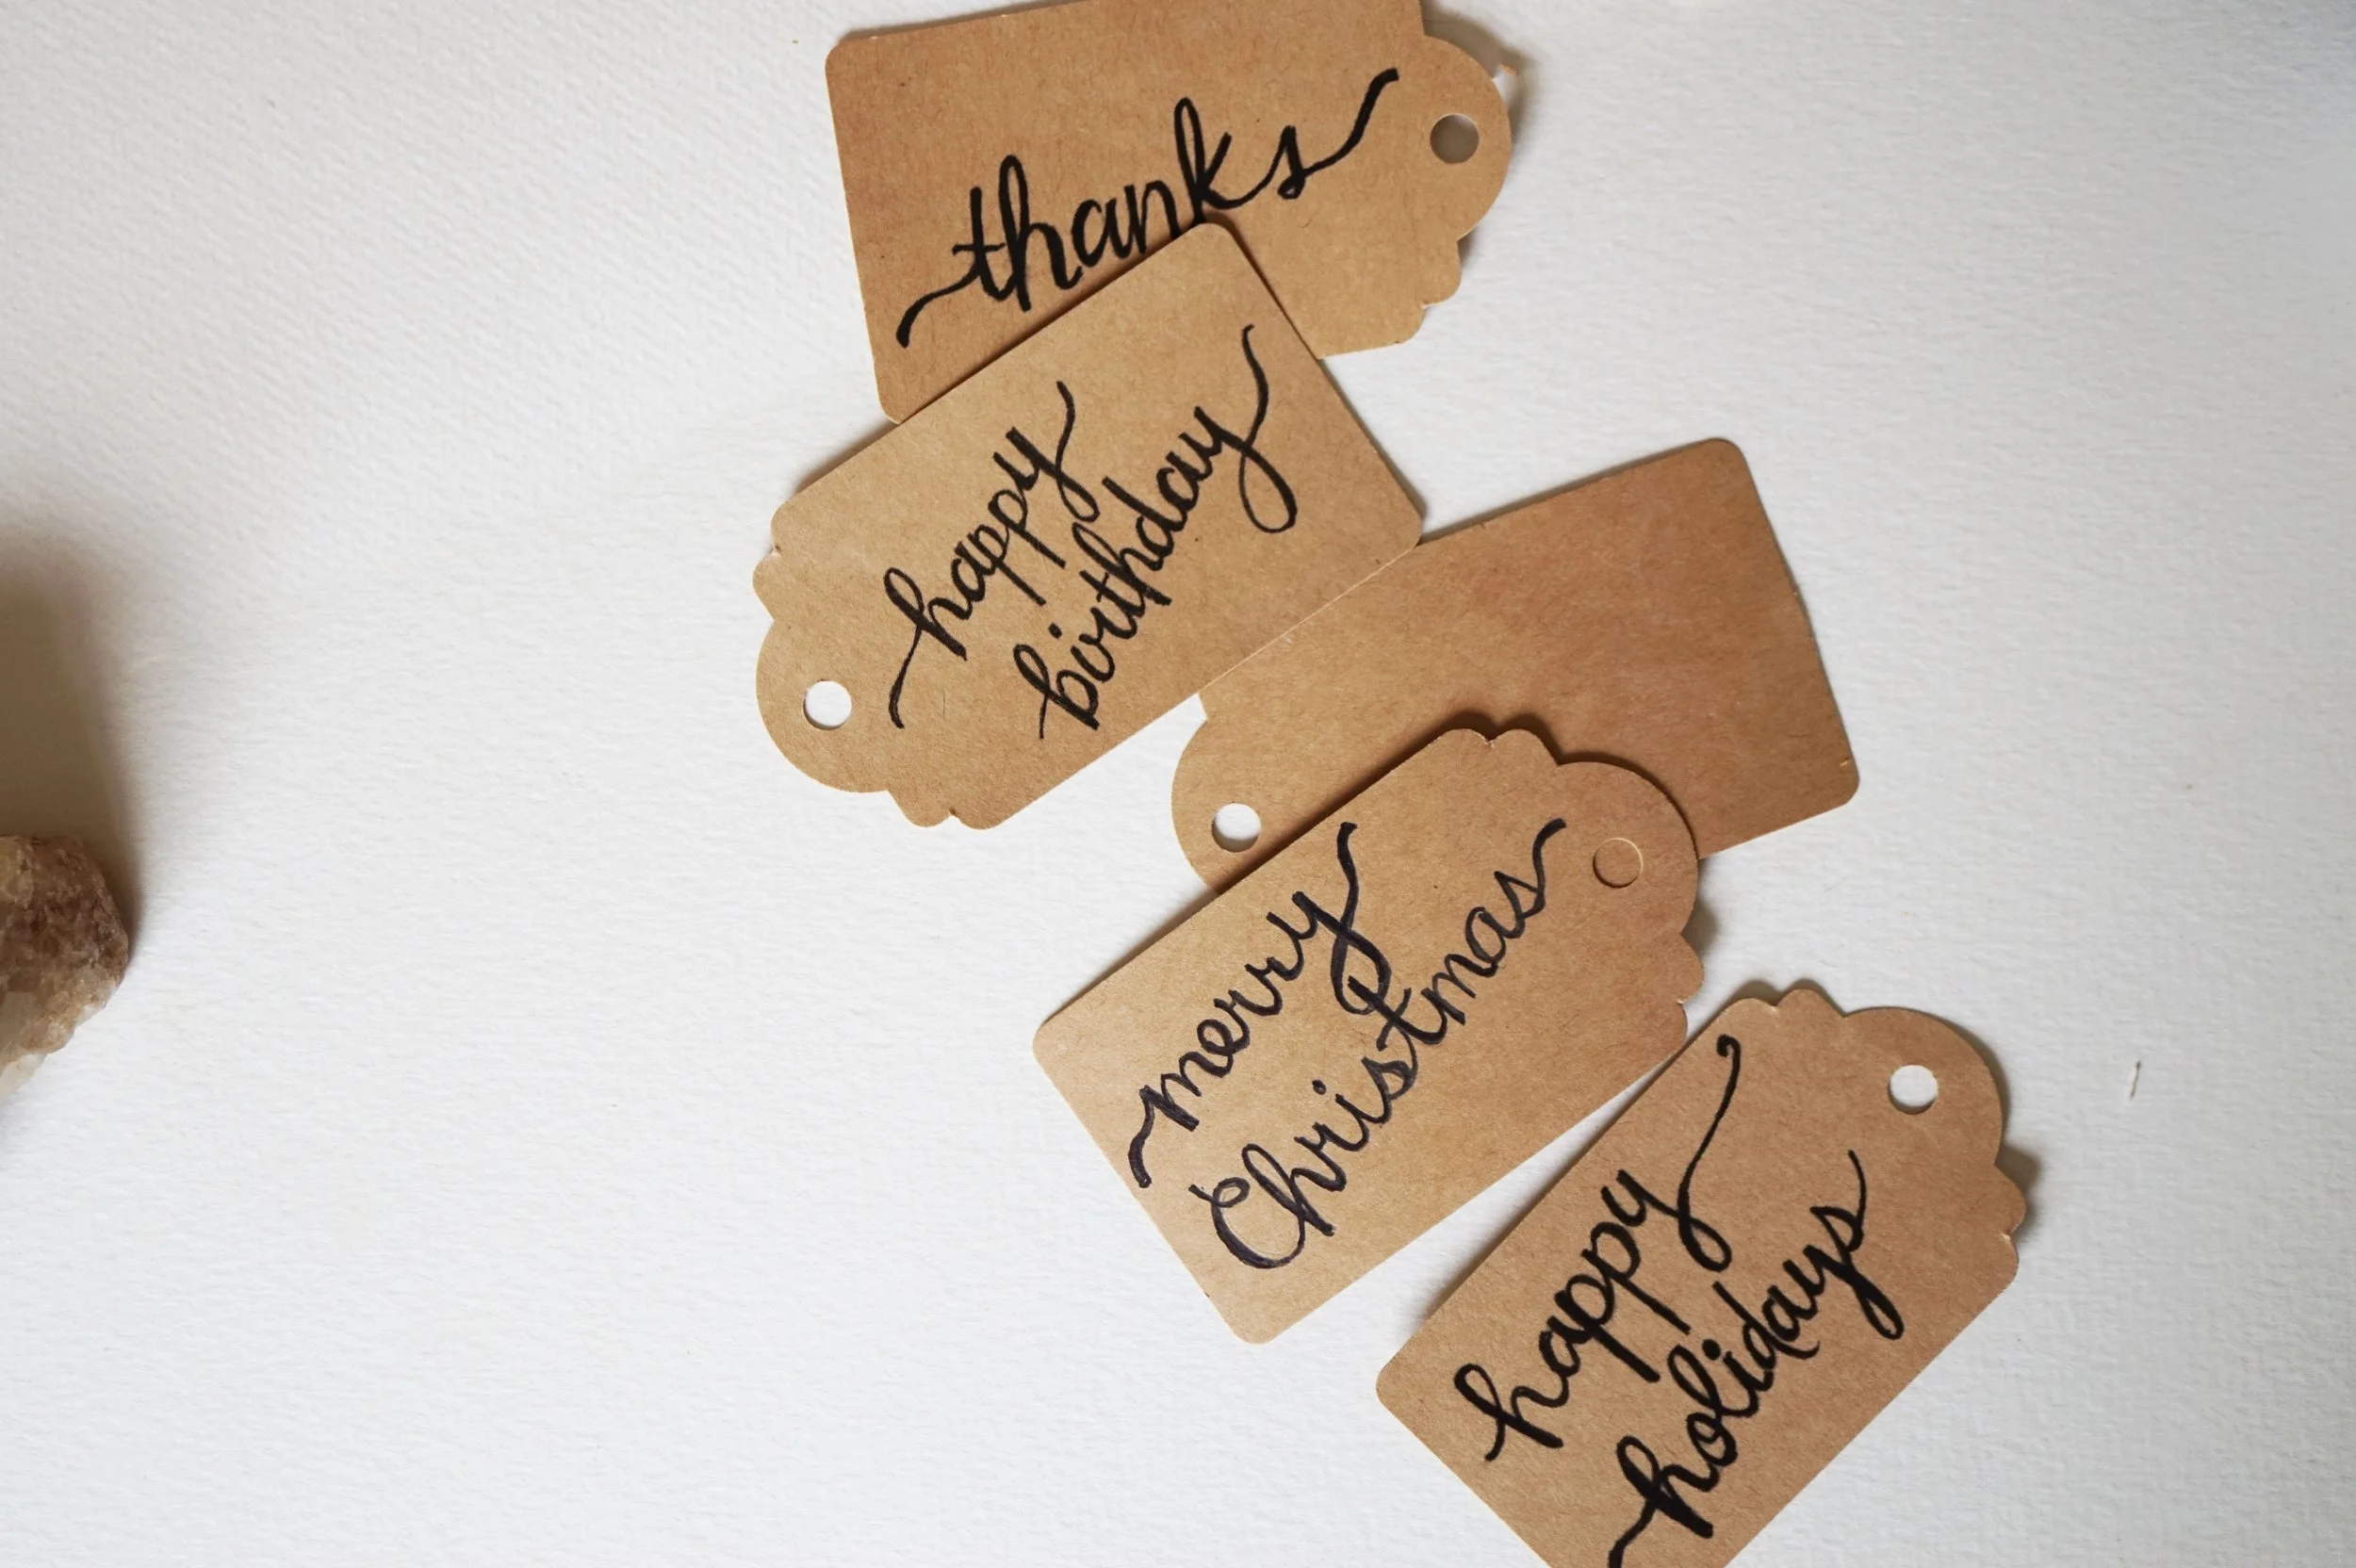 thanks
happy
birthday
merry
Christmas
happy
holidays